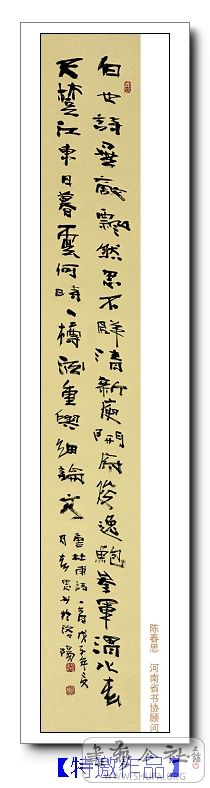 白也詩無敵飄然思不群清新庾開府俊逸鮑參軍渭北春
天樹江東日暮雲何時一樽酒重與細論文
唐杜甫詩一首戊子年
月春思書於洛陽
陈春思 河南省书协顾问
【特邀作品】